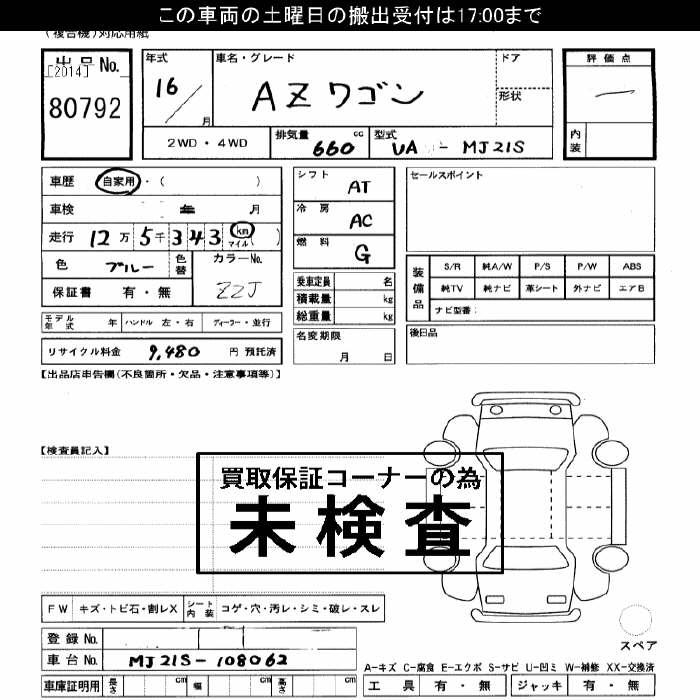 この車両の土曜日の搬出受付は17:00まで
(複合機)対応用紙
出品No.
[2014]
80792
年式
16
月
車名・グレード
AZワゴン
ドア
形状
評価点
内装
2WD・4WD
排気量
660
cc
型式
UA - MJ21S
車歴 自家用・( )
車検 年 月
走行 12万5千343 km マイル ( )
色 ブルー 色替
カラーNo.
ZZJ
保証書 有・無
モデル年式 年 ハンドル 左・右 ディーラー・並行
リサイクル料金 9,480 円 預託済
シフト AT
冷房 AC
燃料 G
乗車定員 名
積載量 kg
総重量 kg
名変期限
月 日
セールスポイント
装備品
S/R 純A/W P/S P/W ABS
純TV 純ナビ 革シート 外ナビ エアB
ナビ型番:
後日品
【出品店申告欄(不良箇所・欠品・注意事項等)】
【検査員記入】
買取保証コーナーの為
未検査
FW キズ・トビ石・割レX シート内装 コゲ・穴・汚レ・シミ・破レ・スレ
登録No.
車台No. MJ21S-108062
車庫証明用 長さ cm 幅 cm 高さ cm
スペア
A-キズ C-腐食 E-エクボ S-サビ U-凹ミ W-補修 XX-交換済
工具 有・無 ジャッキ 有・無